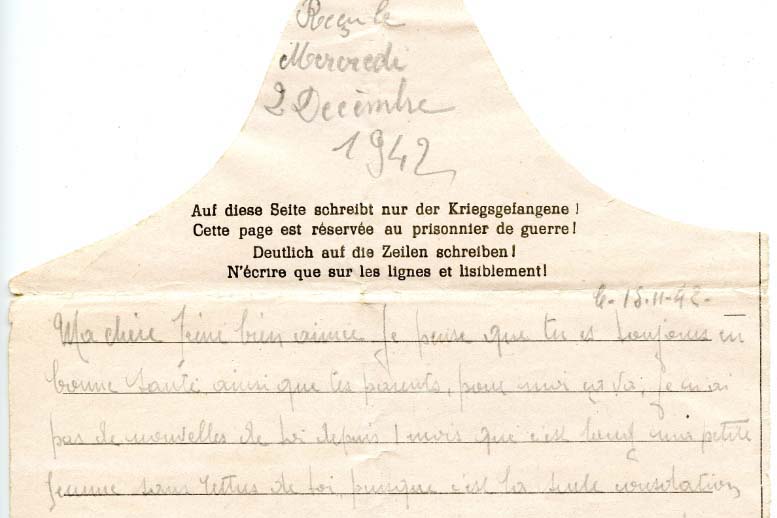 Reçu le
Mercredi
2 Decèmbre
1942
Auf diese Seite schreibt nur der Kriegsgefangene!
Cette page est réservée au prisonnier de guerre!
Deutlich auf die Zeilen schreiben!
N'écrire que sur les lignes et lisiblement!
15-11-42-
Ma chère bien aimée je pense que tu es toujours en
bonne santé ainsi que tes parents, pour moi ça va, je n'ai
pas de nouvelles de toi depuis 1 mois que c'est long ma petite
femme sans lettres de toi, puisque c'est la seule consolation